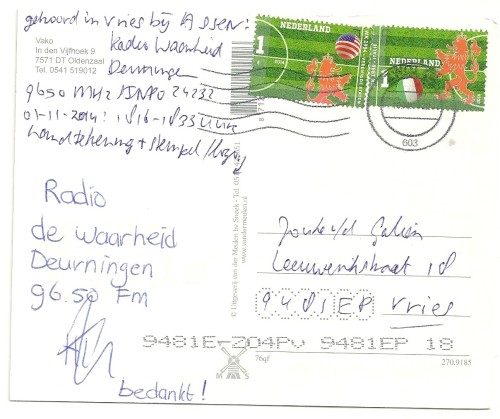 gehoord in Vries bij Assen!
Radio Waarheid
Deurningen
9650 MHz SINPO 24232
01-11-2014! 1816-1835 uur
handtekening + stempel
Vako
In den Vijfhoek 9
7571 DT Oldenzaal
Tel. 0541 519012
NEDERLAND
1
NEDERLAND
1
603
Radio
de waarheid
Deurningen
96.50 Fm
bedankt!
© Uitgeverij van der Meulen bv Sneek - Tel. 05
www.vandermeulen.nl
Leeuwerikstraat 18
9481EP Vries
9481E-204Pv 9481EP 18
M S
76qf
270.9185